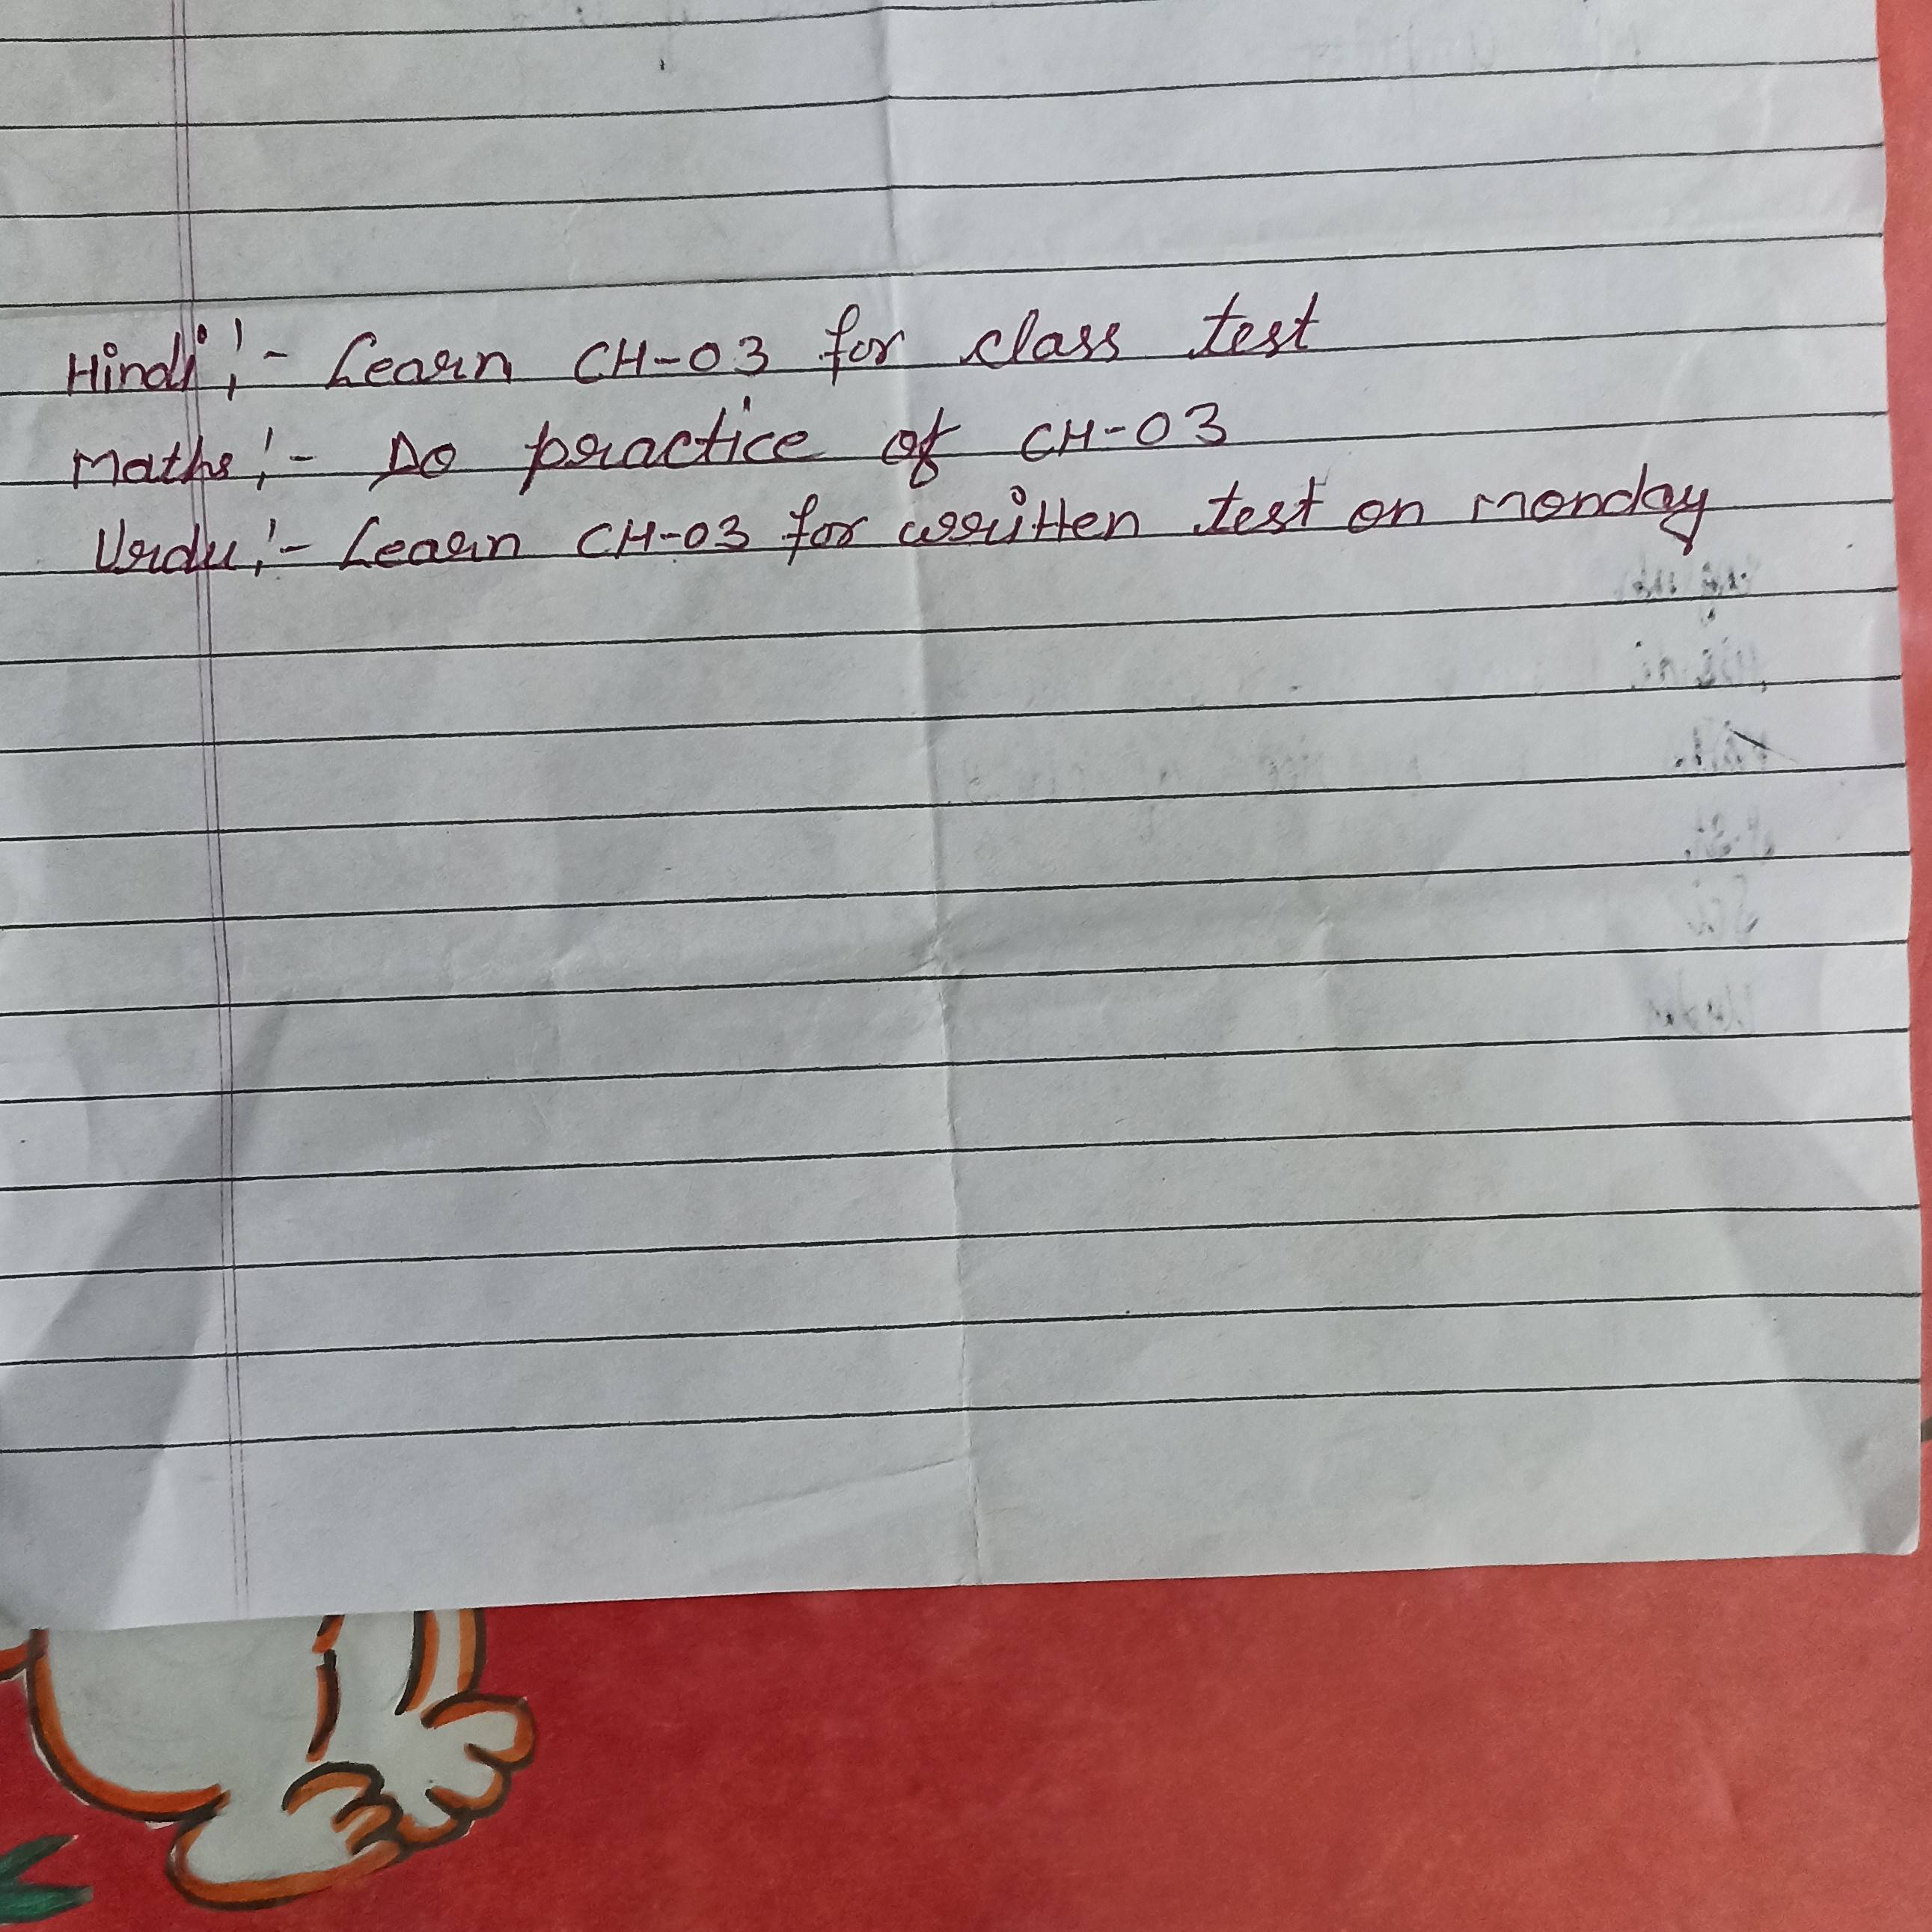 Hindi:- Learn CH-03 for class test
Maths:- Do practice of CH-03
Urdu:- Learn CH-03 for written test on monday